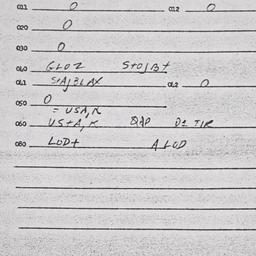 011 0 012 0
020 0
030 0
040 GLOZ STO1B+
041 STAJBLAX 042 0
050 0
= USA, R
060 US+A, R QAP D1 TIR
080 LOD+ A LOD